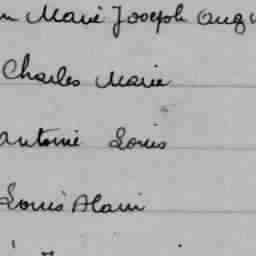 Marie Joseph Aug
Charles Marie
Antoine Louis
Louis Alain